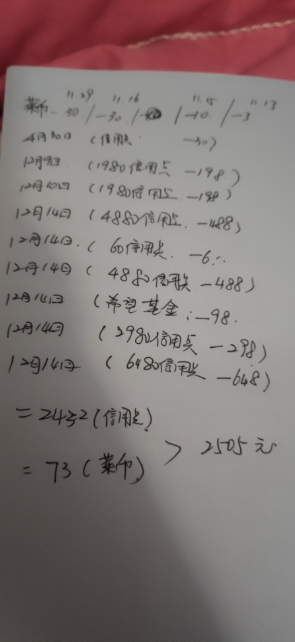 11.29 11.16 11.15 11.13
莱币 -30 / -30 / / -10 / -3
4月30日 (信用点 -30)
12月9日 (1980信用点 -198)
12月10日 (1980信用点 -198)
12月14日 (4880信用点 -488)
12月14日 (60信用点 -6
12月14日 (4880信用点 -488)
12月14日 (希望基金: -98.
12月14日 (2980信用点 -298)
12月14日 (6480信用点 -648)
=2452(信用点)
> 2505元
=73(莱币)